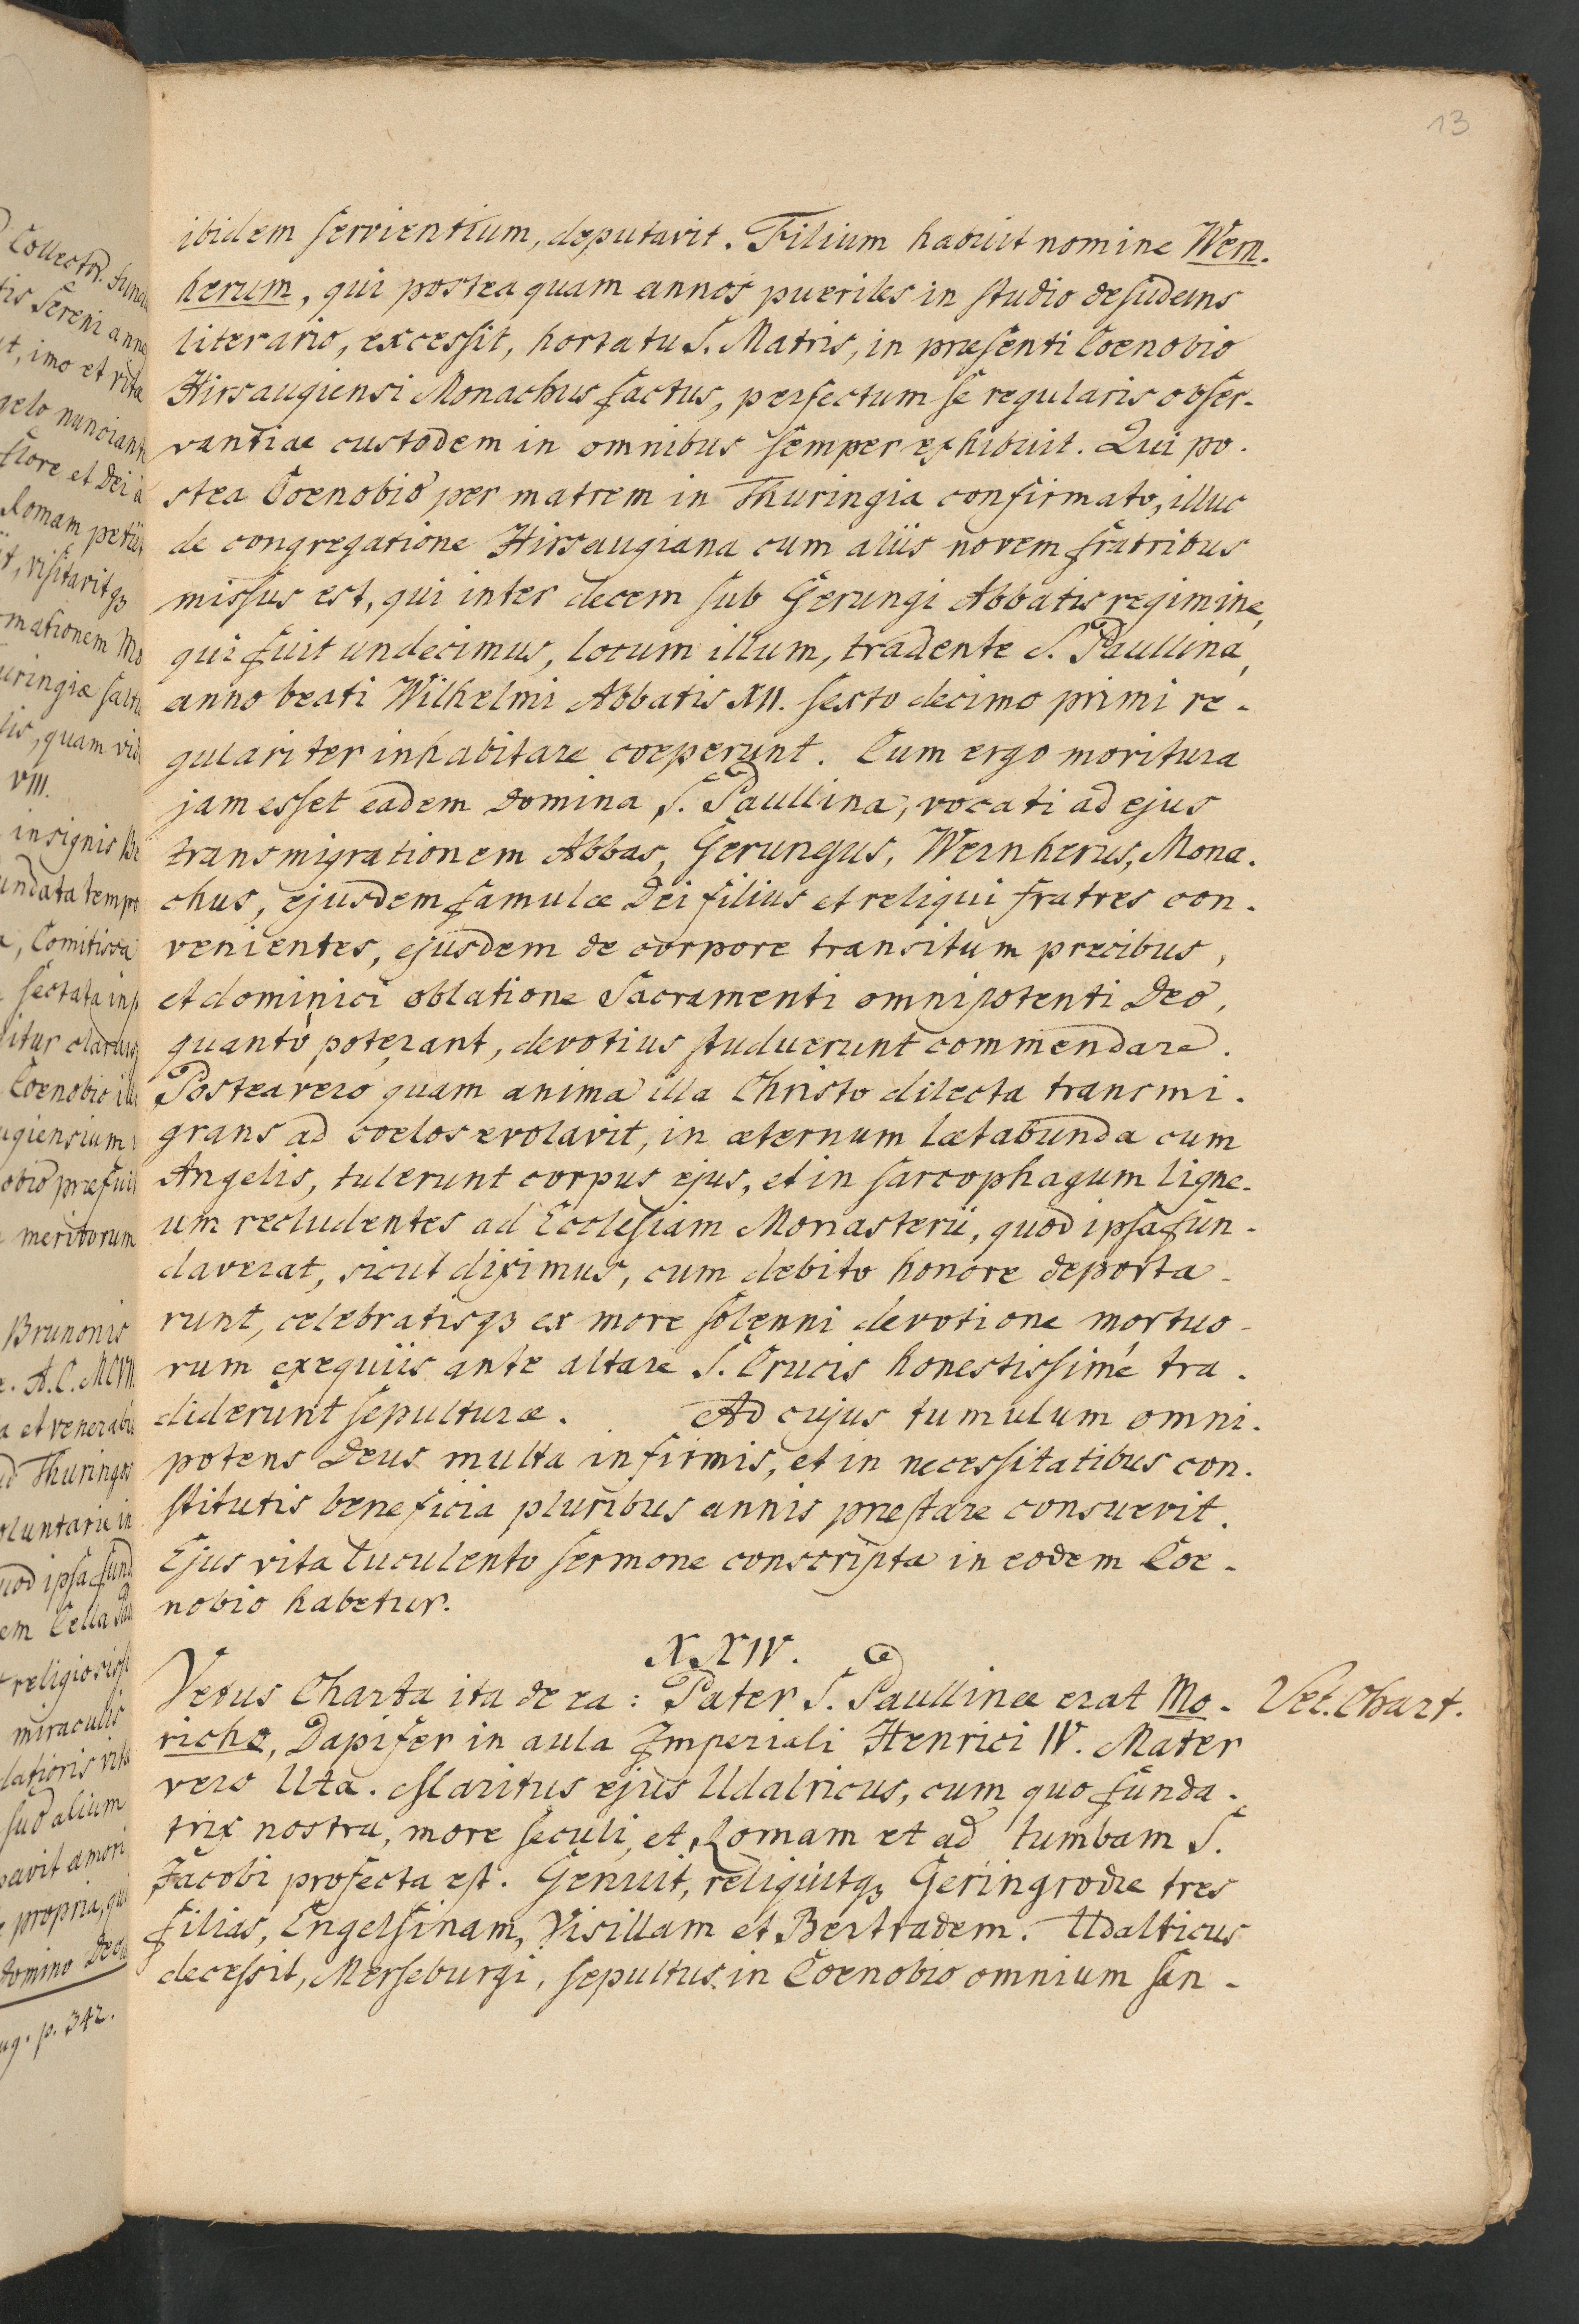 13
ibidem servientium, deputavit. Filium habuit nomine Wern-
herum, qui postea quam annos pueriles in studio desudans
literario, excessit, hortatu S. Matris, in præsenti Coenobio
Hirsaugiensi Monachus factus, perfectum se regularis obser-
vantiae custodem in omnibus semper exhibuit. Qui po-
stea Coenobio per matrem in Thuringia confirmato, illuc
de congregatione Hirsaugiana cum aliis novem fratribus
missus est, qui inter decem sub Gerungi Abbatis regimine,
qui fuit undecimus, locum illum, tradente S. Paullina,
anno beati Wilhelmi Abbatis XII. sexto decimo primi re-
gulariter inhabitare coeperunt. Cum ergo moritura
jam esset eadem Domina S. Paullina, vocati ad ejus
transmigrationem Abbas, Gerungus, Wernherus, Mona-
chus, ejusdem famulæ Dei filius et reliqui fratres con-
venientes, ejusdem de corpore transitum precibus,
et dominici oblatione Sacramenti omnipotenti Deo,
quantò poterant, devotius studuerunt commendare.
Postea vero quam anima illa Christo dilecta transmi-
grans ad coelos evolavit, in æternum lætabunda cum
Angelis, tulerunt corpus ejus, et in sarcophagum ligne-
um recludentes ad Ecclesiam Monasterii, quod ipsa fun-
daverat, sicut diximus, cum debito honore deporta-
runt, celebratisqz ex more solenni devotione mortuo-
rum exequiis ante altare S. Crucis honestissimé tra-
diderunt sepulturæ. Ad cujus tumulum omni-
potens Deus multa infirmis, et in necessitatibus con-
stitutis beneficia pluribus annis præstare consuevit.
Ejus vita luculento sermone conscripta in eodem Coe-
nobio habetur.
XXIV.
Vetus Charta ita de ea: Pater S. Paullinæ erat Mo- Vet. Chart.
richo, Dapifer in aula Imperiali Henrici IV. Mater
vero Uta. Maritus ejus Udalricus, cum quo funda-
trix nostra, more seculi, et Romam et ad tumbam S.
Jacobi profecta est. Genuit, reliquitqz Geringrodæ tres
filias, Engelsinam, Visillam et Bertradem. Udalricus
decessit, Merseburgi, sepultus in Coenobio omnium San-